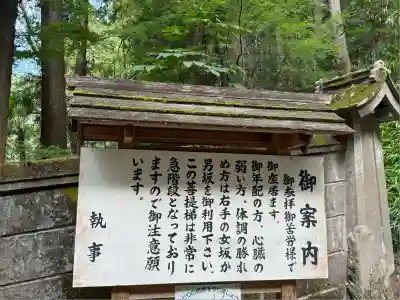 御案内
御参拝御苦労様で
御座居ます。
御年配の方、心臓の
弱い方、体調の勝れ
ぬ方は右手の女坂か
男坂を御利用下さい。
この菩提梯は非常に
急階段となっており
ますので御注意願
います。
執事